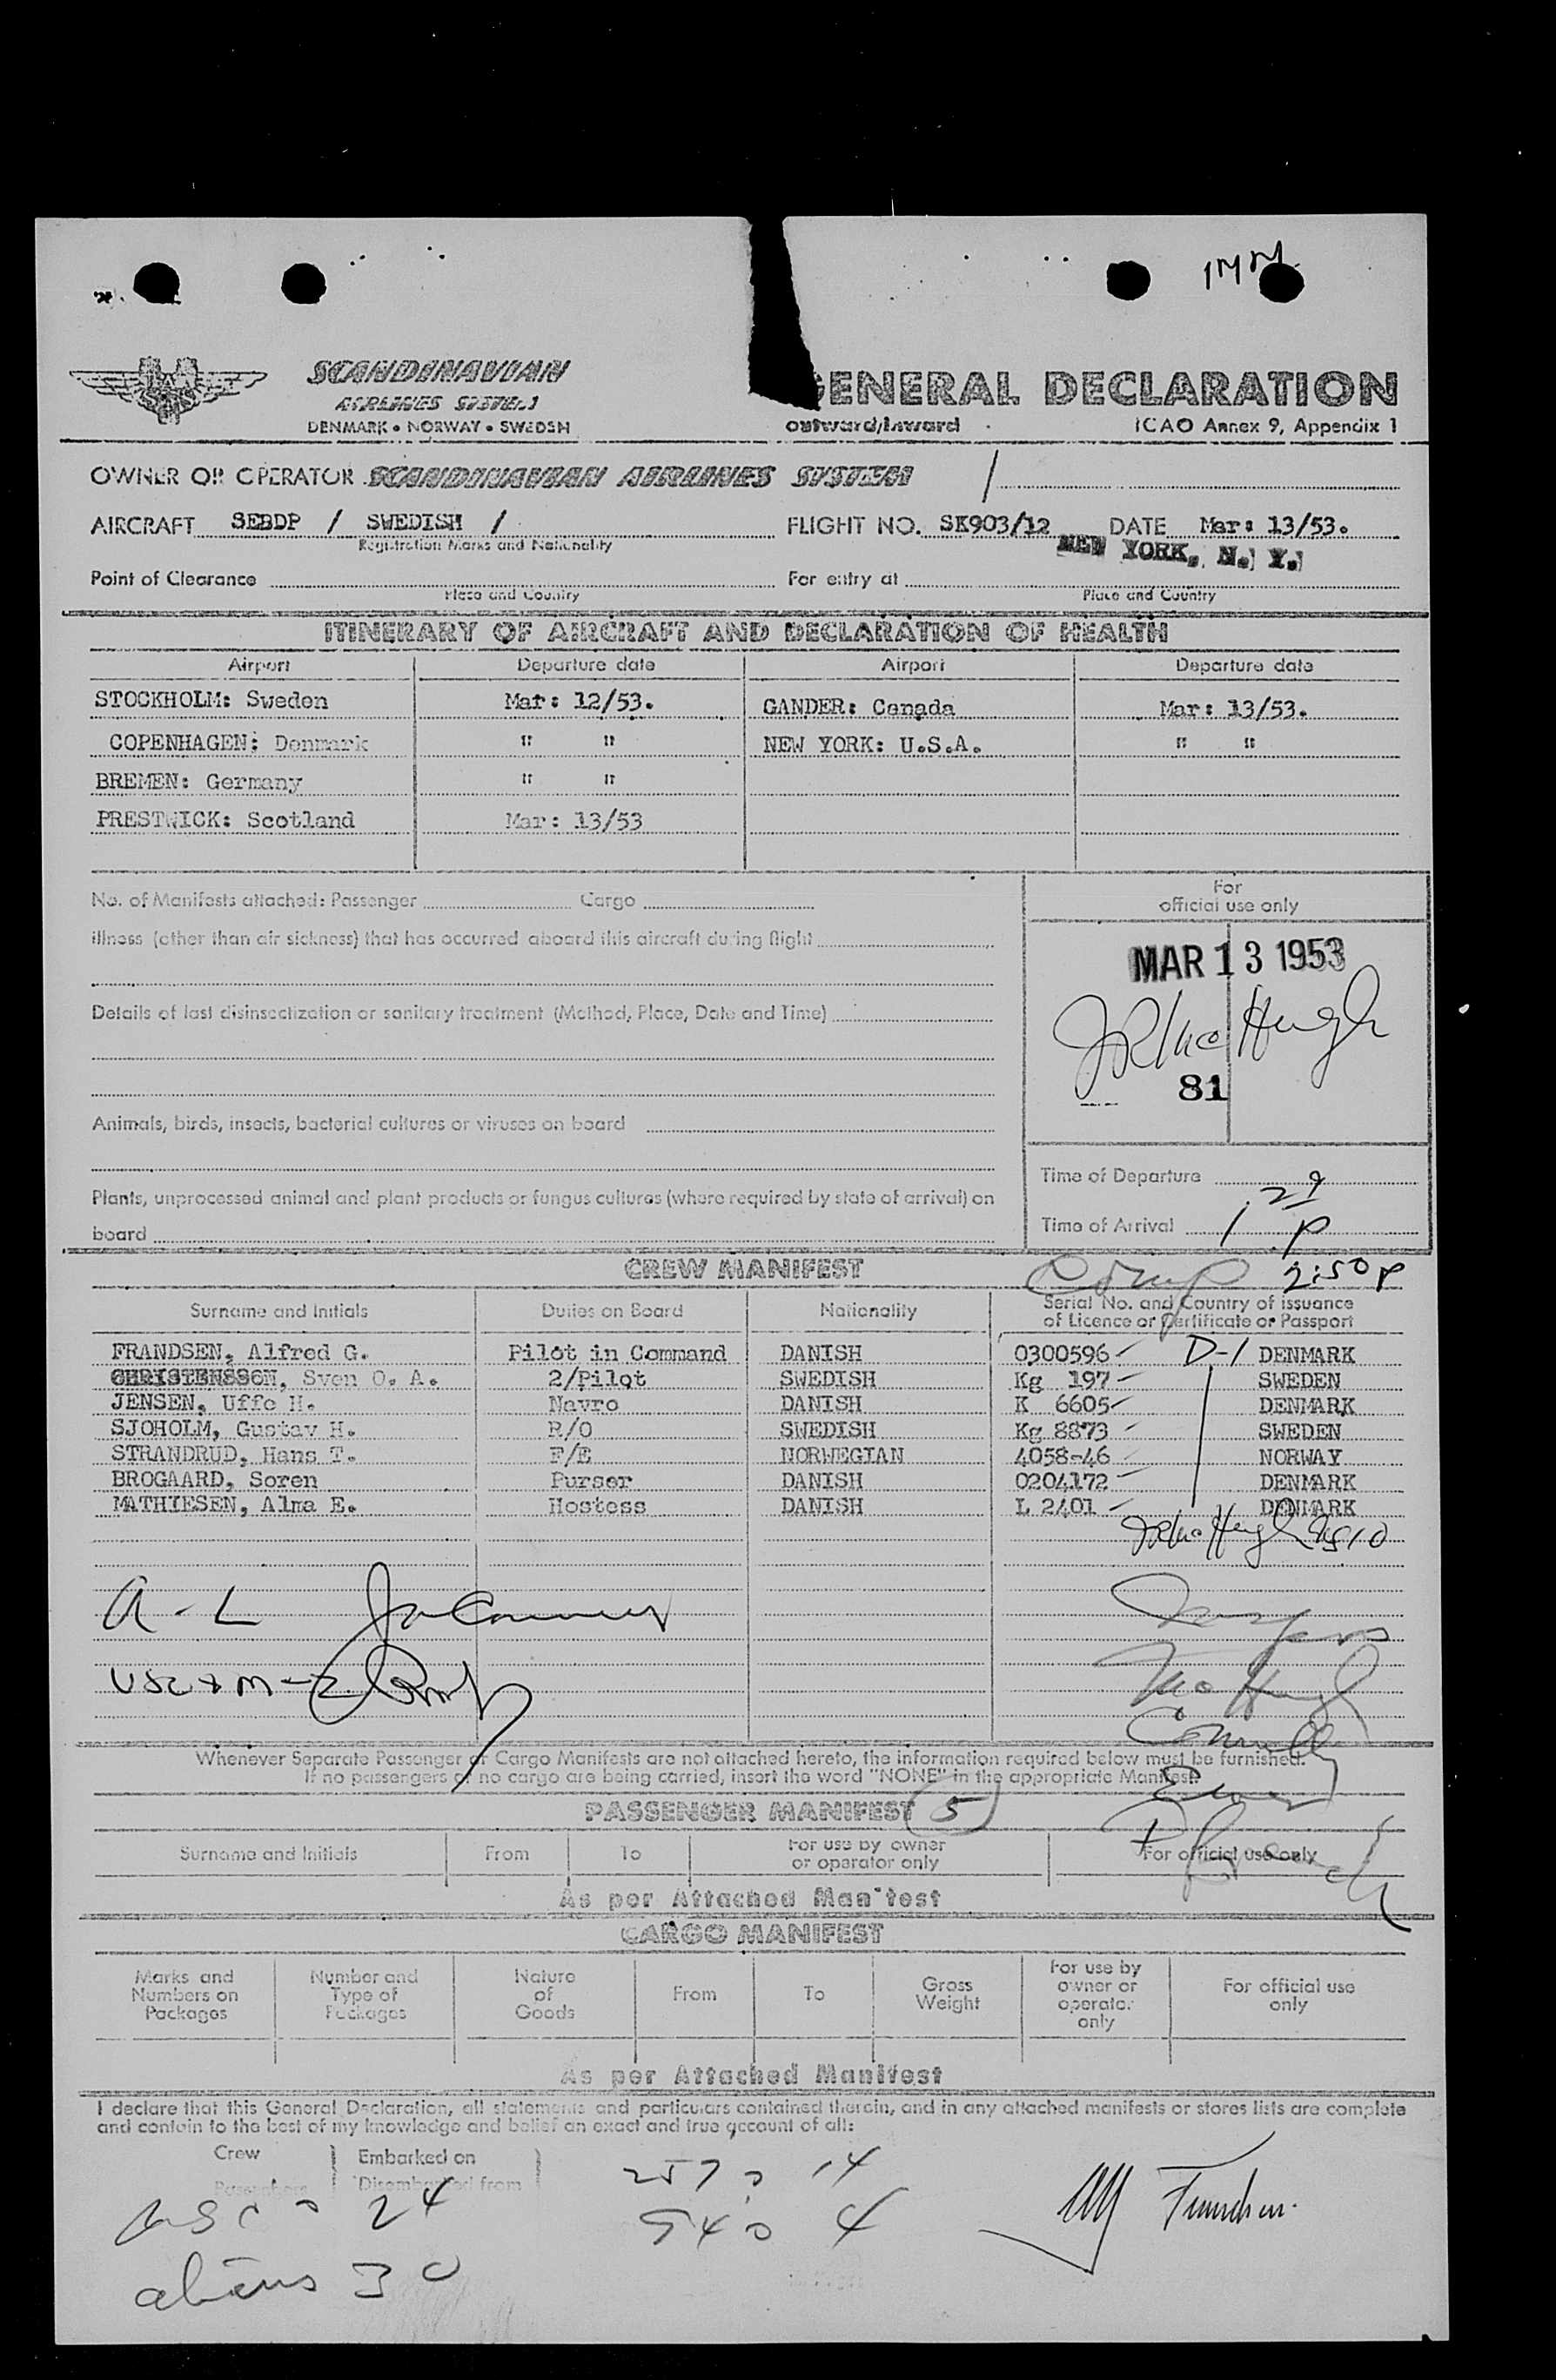 IMM
SAS
SCANDINAVIAN
AIRLINES SYSTEM
DENMARK • NORWAY • SWEDEN
GENERAL DECLARATION
outward/inward ICAO Annex 9, Appendix 1
OWNER OR OPERATOR SCANDINAVIAN AIRLINES SYSTEM /
AIRCRAFT SEBDP / SWEDISH / FLIGHT NO. SK903/12 DATE Mar: 13/53.
Registration Marks and Nationality
NEW YORK, N. Y.
Point of Clearance For entry at
Place and Country Place and Country
ITINERARY OF AIRCRAFT AND DECLARATION OF HEALTH
Airport Departure date Airport Departure date
STOCKHOLM: Sweden Mar: 12/53. GANDER: Canada Mar: 13/53.
COPENHAGEN: Denmark " " NEW YORK: U.S.A. " "
BREMEN: Germany " "
PRESTWICK: Scotland Mar: 13/53
No. of Manifests attached: Passenger Cargo
For
official use only
illness (other than air sickness) that has occurred aboard this aircraft during flight
MAR 13 1953
Details of last disinsectization or sanitary treatment (Method, Place, Date and Time)
JR McHugh
81
Animals, birds, insects, bacterial cultures or viruses on board
Plants, unprocessed animal and plant products or fungus cultures (where required by state of arrival) on
board
Time of Departure
Time of Arrival 1 29 P
CREW MANIFEST
Comp 2:50 P
Surname and Initials Duties on Board Nationality Serial No. and Country of issuance
of Licence or Certificate or Passport
FRANDSEN, Alfred G. Pilot in Command DANISH 0300596 D-1 DENMARK
CHRISTENSSON, Sven O. A. 2/Pilot SWEDISH Kg 197 SWEDEN
JENSEN, Uffe H. Navro DANISH K 6605 DENMARK
SJOHOLM, Gustav H. R/O SWEDISH Kg 8873 SWEDEN
STRANDRUD, Hans T. F/E NORWEGIAN 4058-46 NORWAY
BROGAARD, Soren Purser DANISH 0204172 DENMARK
MATHIESEN, Alma E. Hostess DANISH L 2401 DENMARK
JR McHugh
A - L
McHugh
USC + M-Z
Connelly
Whenever Separate Passenger or Cargo Manifests are not attached hereto, the information required below must be furnished.
If no passengers or no cargo are being carried, insert the word "NONE" in the appropriate Manifest.
PASSENGER MANIFEST 5
Surname and Initials From To For use by owner
or operator only For official use only
As per Attached Manifest
CARGO MANIFEST
Marks and
Numbers on
Packages
Number and
Type of
Packages
Nature
of
Goods
From
To
Gross
Weight
For use by
owner or
operator
only
For official use
only
As per Attached Manifest
I declare that this General Declaration, all statements and particulars contained therein, and in any attached manifests or stores lists are complete
and contain to the best of my knowledge and belief an exact and true account of all:
Crew
Passengers
Embarked on
Disembarked from
257 14
usc 24 540 4
aliens 30